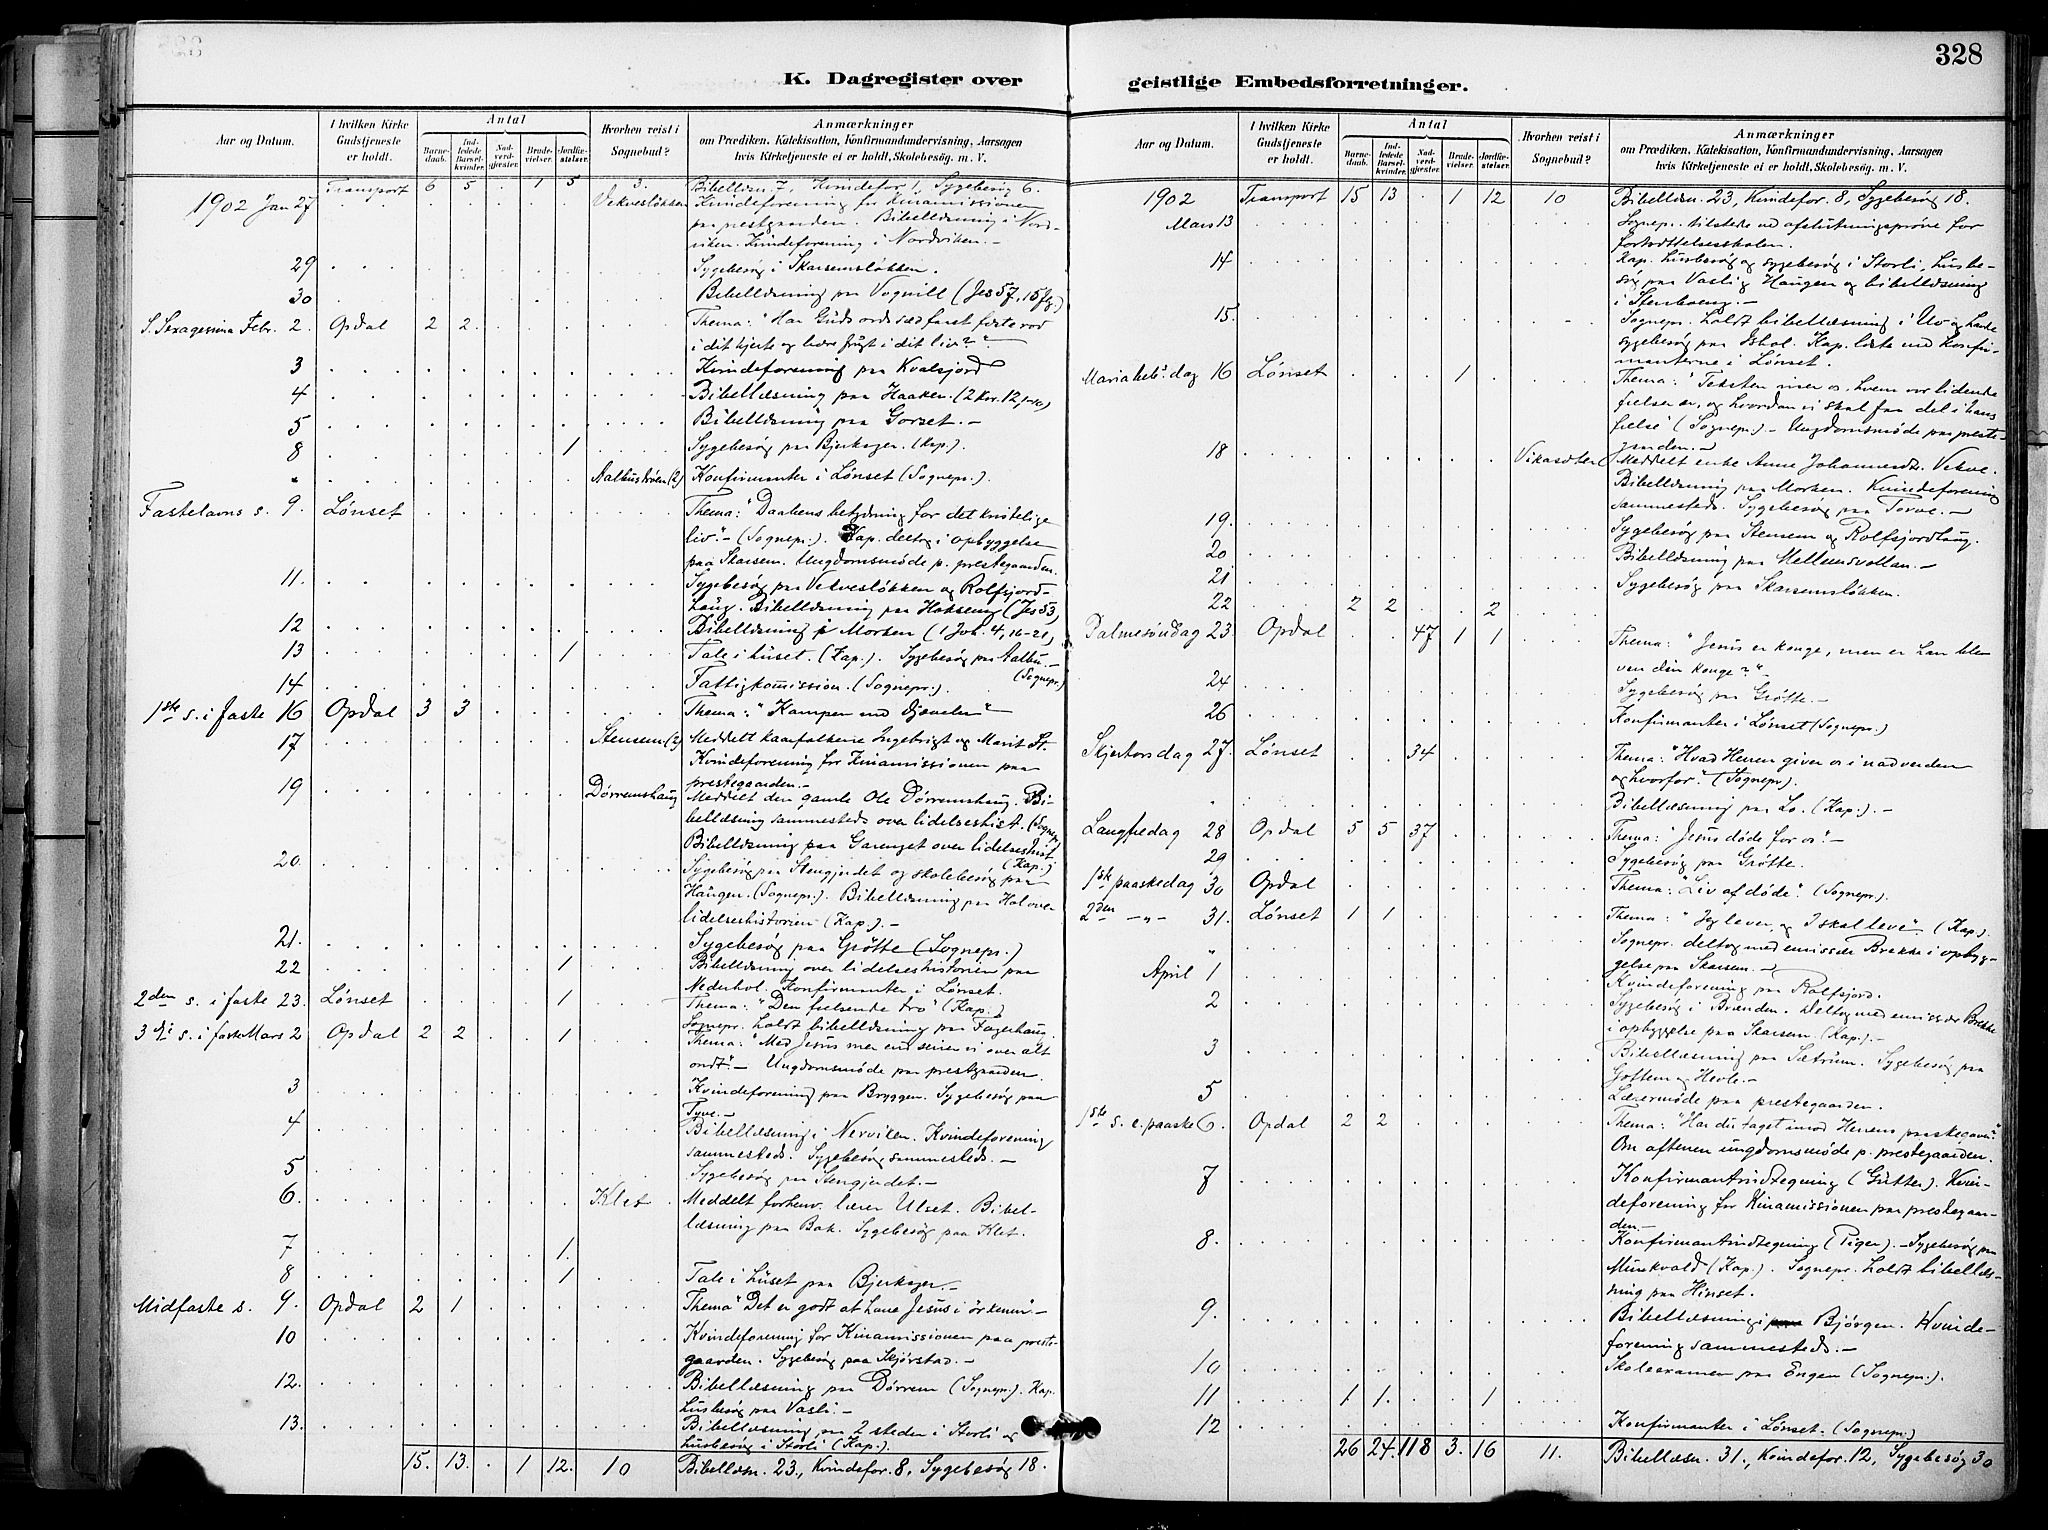 328
K. Dagregister over
geistlige Embedsforretninger.
Aar og Datum.
I hvilken Kirke Gudstjeneste er holdt.
Antal
Barne-daab.
Ind-ledede Barsel-kvinder.
Nad-verd-gjester.
Brude-vielser.
Jordfæ-stelser.
Hvorhen reist i Sognebud?
Anmærkninger
om Prædiken, Katekisation, Konfirmandundervisning, Aarsagen
hvis Kirketjeneste ei er holdt, Skolebesøg. m. V.
Transport 6 5 . 1 5 3. Bibellæsn. 7, Kvindefor. 1, Sygebesøg 6.
1902 Jan 27 Vekvesløkken Kvindeforening for Kinamissionen
paa prestgaarden. Bibellæsning i Nord-
viken. Kvindeforening i Nordviken.-
29 Sygebesøg i Skarsemsløkken.
30 Bibellæsning paa Vognill (Jes 57, 15 fg.)
S. Sexagesima Febr. 2. Opdal 2 2 Thema: "Har Guds ords sæd faret fæste rod
i dit hjerte og bære frugt i dit liv?"
3 Kvindeforening paa Kvalsjord
4 Bibellæsning paa Haaken. (2 Kor. 12, 1-10)
5 Bibellæsning paa Gorset.-
8 1 Sygebesøg paa Bjerkager. (Kap.).
" Aalbusrøen (2) Konfirmanter i Lønset (Sognepr.).
Fastelavns s. 9. Lønset Thema: "Daabens betydning for det kristelige
liv".- (Sognepr.). Kap. deltog i opbyggelse
paa Skarsem. Ungdomsmøde p. prestegaarden.
11. Sygebesøg paa Vekvesløkken og Rolfsjord-
haug. Bibellæsning paa Hokseng (Jes 53)
12 Bibellæsning p. Morken (1 Joh. 4, 16-21)
13 1 Tale i huset. (Kap.). Sygebesøg paa Aalbu.-
(Sognepr.)
14 Fattigkomission. (Sognepr.).
1ste s. i faste 16 Opdal 3 3 Thema: "Kampen med djævelen"
17 Stensem (2) Meddelt kaarfolkene Ingebrigt og Marit St.
Kvindeforening for Kinamissionen paa
prestegaarden.-
19 Dørremshaug Meddelt den gamle Ole Dørremshaug. Bi-
bellæsning sammesteds over lidelseshist. (Sognepr.)
Bibellæsning paa Garenget over lidelseshist.
(Kap.)
20. Sygebesøg paa Stengjerdet og skolebesøg paa
Haugen. (Sognepr.). Bibellæsning paa Hol over
lidelseshistorien (Kap.).-
21. Sygebesøg paa Grøtte (Sognepr.)
22 1 Bibellæsning over lidelseshistorien paa
Nederhol. Konfirmanter i Lønset.
2den s. i faste 23. Lønset 1 Thema: "Den frelsende tro" (Kap.)
Sognepr. holdt bibellæsning paa Fagerhaug.
3die s. i faste Mars 2 Opdal 2 2 1 Thema: "Med Jesus mer end seirer vi over alt
ondt".- Ungdomsmøde paa prestgaarden.
3 Kvindeforening paa Bryggen. Sygebesøg paa
Tyve.-
4 Bibellæsning i Nerviken. Kvindeforening
sammesteds. Sygebesøg sammesteds.-
5 Sygebesøg paa Stengjerdet.-
6. Klet Meddelt forhenv. lærer Ulset. Bibel-
læsning paa Bak. Sygebesøg paa Klet.
7 1.
8 1 Tale i huset paa Bjerkager.-
Midfaste s. 9. Opdal 2 1 Thema "Det er godt at have Jesus i ørkenen".-
10 Kvindeforening for Kinamissionen paa preste-
gaarden. Sygebesøg paa Skjørstad.-
12. Bibellæsning paa Dørrem (Sognepr.). Kap.
husbesøg paa Vasli.-
13. Bibellæsning paa 2 steden i Storli og
husbesøg i Storli (Kap.).
15. 13. . 1 12. 10 Bibellæsn. 23., Kvindefor. 8, Sygebesøg 18.
Aar og Datum.
I hvilken Kirke Gudstjeneste er holdt.
Antal
Barne-daab.
Ind-ledede Barsel-kvinder.
Nad-verd-gjester.
Brude-vielser.
Jordfæ-stelser.
Hvorhen reist i Sognebud?
Anmærkninger
om Prædiken, Katekisation, Konfirmandundervisning, Aarsagen
hvis Kirketjeneste ei er holdt, Skolebesøg. m. V.
1902 Transport 15 13 . 1 12 10 Bibellæsn. 23, Kvindefor. 8, Sygebesøg 18.
Mars 13 Sognepr. tilstede ved afslutningsprøve for
fortsættelsesskolen.
14 Kap. husbesøg og sygebesøg i Storli, husbe-
søg paa Vasli, Haugen og bibellæsning
i Stenboeng.-
15. Sognepr. holdt bibellæsning i Uv og havde
sygebesøg paa Iskol. Kap. læste med konfir-
manterne i Lønset.
Maria beb.s dag 16 Lønset 1 Thema: "Teksten viser os, hvem vor lidende
frelser er, og hvordan vi skal faa del i hans
frelse" (Sognepr.).- Ungdomsmøde paa preste-
gaarden.-
18 Vikasæter Meddelt enke Anne Johannesdt. Vekve.
Bibellæsning paa Morken. Kvindeforening
sammesteds. Sygebesøg paa Torve.-
19. Sygebesøg paa Stensem og Rolfsjordhaug.
20 Bibellæsning paa Mellemsvollan.-
21 Sygebesøg paa Skarsemsløkken.
22 2 2 2
Palmesøndag 23. Opdal 47 1 1 Thema: "Jesus er konge, men er han bleven
din konge?"
24 Sygebesøg paa Grøtte.-
26 Konfirmanter i Lønset (Sognepr.)
Skjertorsdag 27. Lønset 34 Thema: "Hvad Herren giver os i nadverden
og hvorfor." (Sognepr.).
" Bibellæsning paa Lo. (Kap.).-
Langfredag 28 Opdal 5 5 37 Thema: "Jesus døde for os".-
29 Sygebesøg paa Grøtte.
1ste paaskedag 30 Opdal Thema: "Liv af døde". (Sognepr.).
2den -"- 31. Lønset 1 1 Thema: "Jeg lever, og I skal leve" (Kap.).
" Sognepr. deltog med emissær Brekke i opbyg-
gelse paa Skarsem.-
April 1 Kvindeforening paa Rolfsjord.
2 Sygebesøg i Brænden. Deltog med emissær Brekke
i opbyggelse paa Skarsem. (Kap.).-
3 Bibellæsning paa Sætrum. Sygebesøg paa
Gottem og Hevle.-
5 Lærermøde paa prestegaarden.
1ste s. e. paaske 6. Opdal 2 2 Thema: "Har du taget imod Herrens paaskegaver".
Om aftenen ungdomsmøde p. prestegaarden.
7 Konfirmantindtegning (Gutter). Kvin-
deforening for Kinamissionen paa prestegaar-
den.-
8. Konfirmantindtegning (Piger).- Sygebesøg paa
Munkvold (Kap.). Sognepr. holdt bibellæs-
ning paa Hinset.
9. Bibellæsning i Bjørgen. Kvinde-
forening sammesteds.-
10 Skoleexamen paa Engen (Sognepr.).
11 1 1. 1
12 Konfirmanter i Lønset. (Sognepr.)
26 24. 118 3. 16 11. Bibellæsn. 31., Kvindefor. 12, Sygebesøg 30